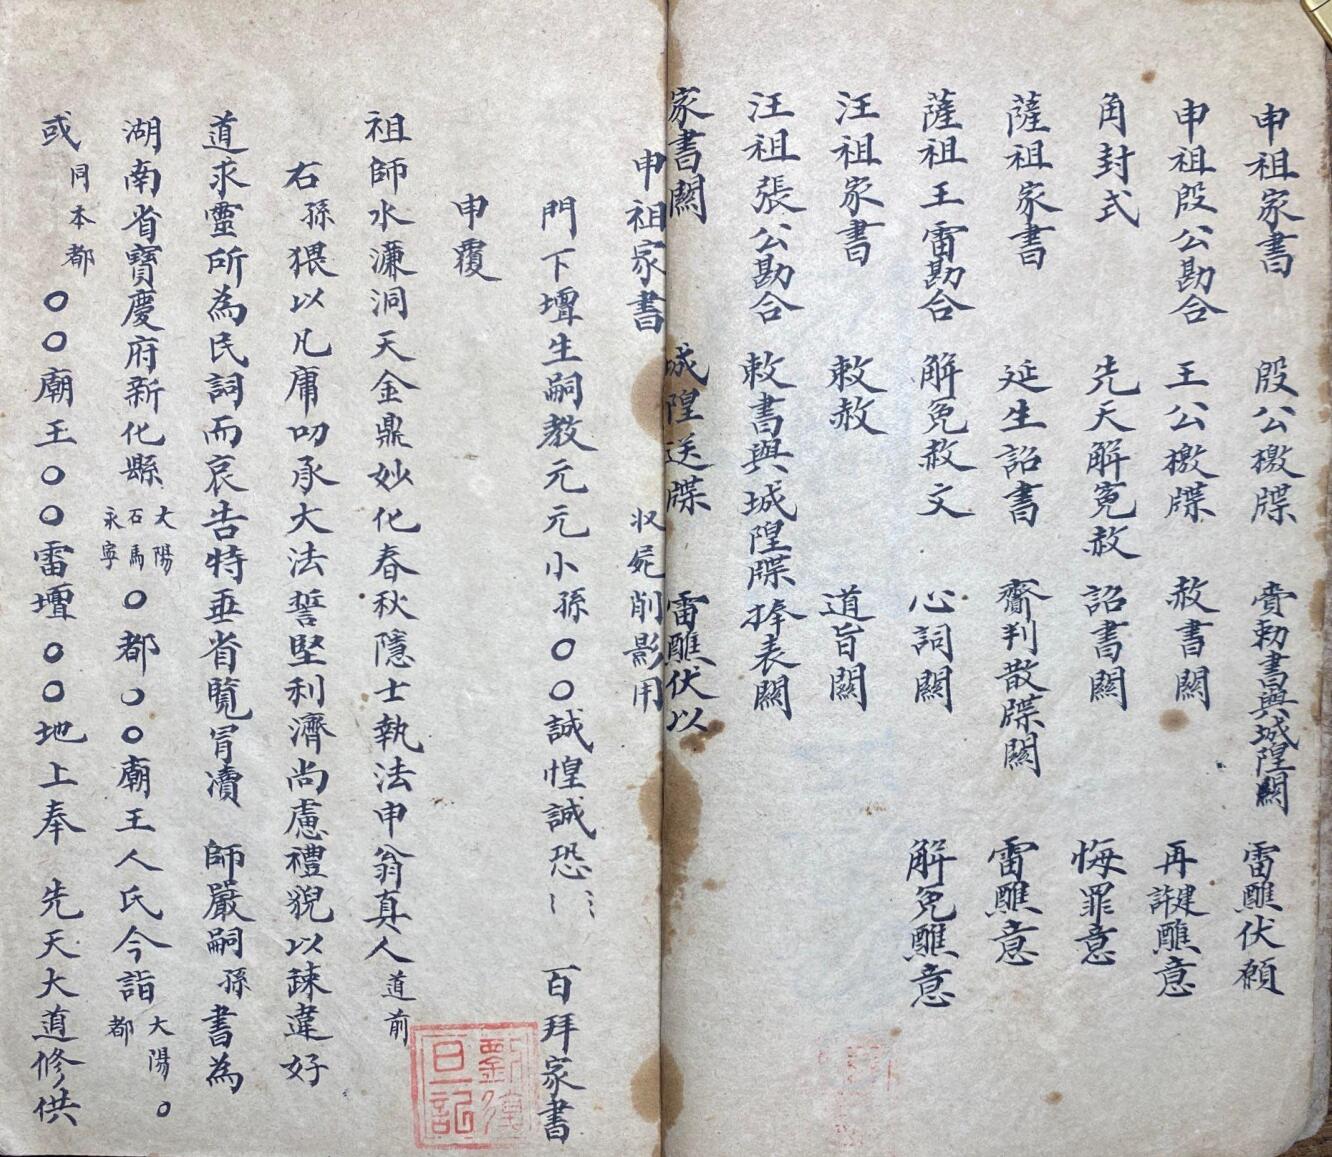 申祖家書 殷公檄牒 賫勅書與城隍關 雷醮伏願
申祖殷公勘合 王公檄牒 赦書關 再謝醮意
角封式 先天解冤赦 詔書關 悔罪意
薩祖家書 延生詔書 齋判散牒關 雷醮意
薩祖王雷勘合 解冤赦文 心詞關 解冤醮意
汪祖家書 敕赦 道旨關
汪祖張公勘合 敕書與城隍牒 捧表關
家書關 城隍送牒 雷醮伏以
申祖家書 収屍削影用
門下壇生嗣教元元小孫〇〇誠惶誠恐 百拜家書
申覆
祖師水濂洞天金鼎妙化春秋隱士執法申翁真人道前
右孫猥以凡庸叨承大法誓堅利濟尚慮禮貌以踈違好
道求靈所為民詞而哀告特垂省覽冐瀆 師嚴嗣孫書為
湖南省寶慶府新化縣大陽石馬永寧〇都〇〇廟王人氏今詣大陽〇都
或同本都〇〇廟王〇〇雷壇〇〇地上奉 先天大道修供
劉漢
旦記